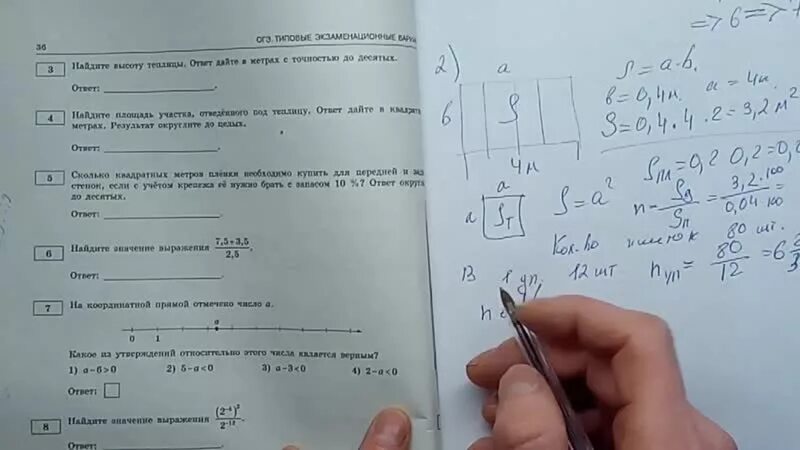 36
ОГЭ. ТИПОВЫЕ ЭКЗАМЕНАЦИОННЫЕ
3 Найдите высоту теплицы. Ответ дайте в метрах с точностью до десятых.
Ответ:
4 Найдите площадь участка, отведённого под теплицу. Ответ дайте в
метрах. Результат округлите до целых.
Ответ:
5 Сколько квадратных метров плёнки необходимо купить для передней и
стенок, если с учётом крепежа её нужно брать с запасом 10 %? Ответ
до десятых.
Ответ:
6 Найдите значение выражения (7,5+3,5)/2,5.
Ответ:
7 На координатной прямой отмечено число a.
0 1 a
Какое из утверждений относительно этого числа является верным?
1) a−6>0 2) 5−a<0 3) a−3<0 4) 2−a<0
Ответ:
8 Найдите значение выражения
Ответ:
=> 6 =>
2) a
S = a·b.
в S
в = 0,4м. a = 4м.
S = 0,4 · 4 · 2 = 3,2 м²
4м
a
a Sт S = a²
0,2 · 0,2 =
n = = 3,2·100 / 0,04·100 =
Кол-во 80 шт.
В 1 уп, 12 шт nуп = 80/12 = 6
n =